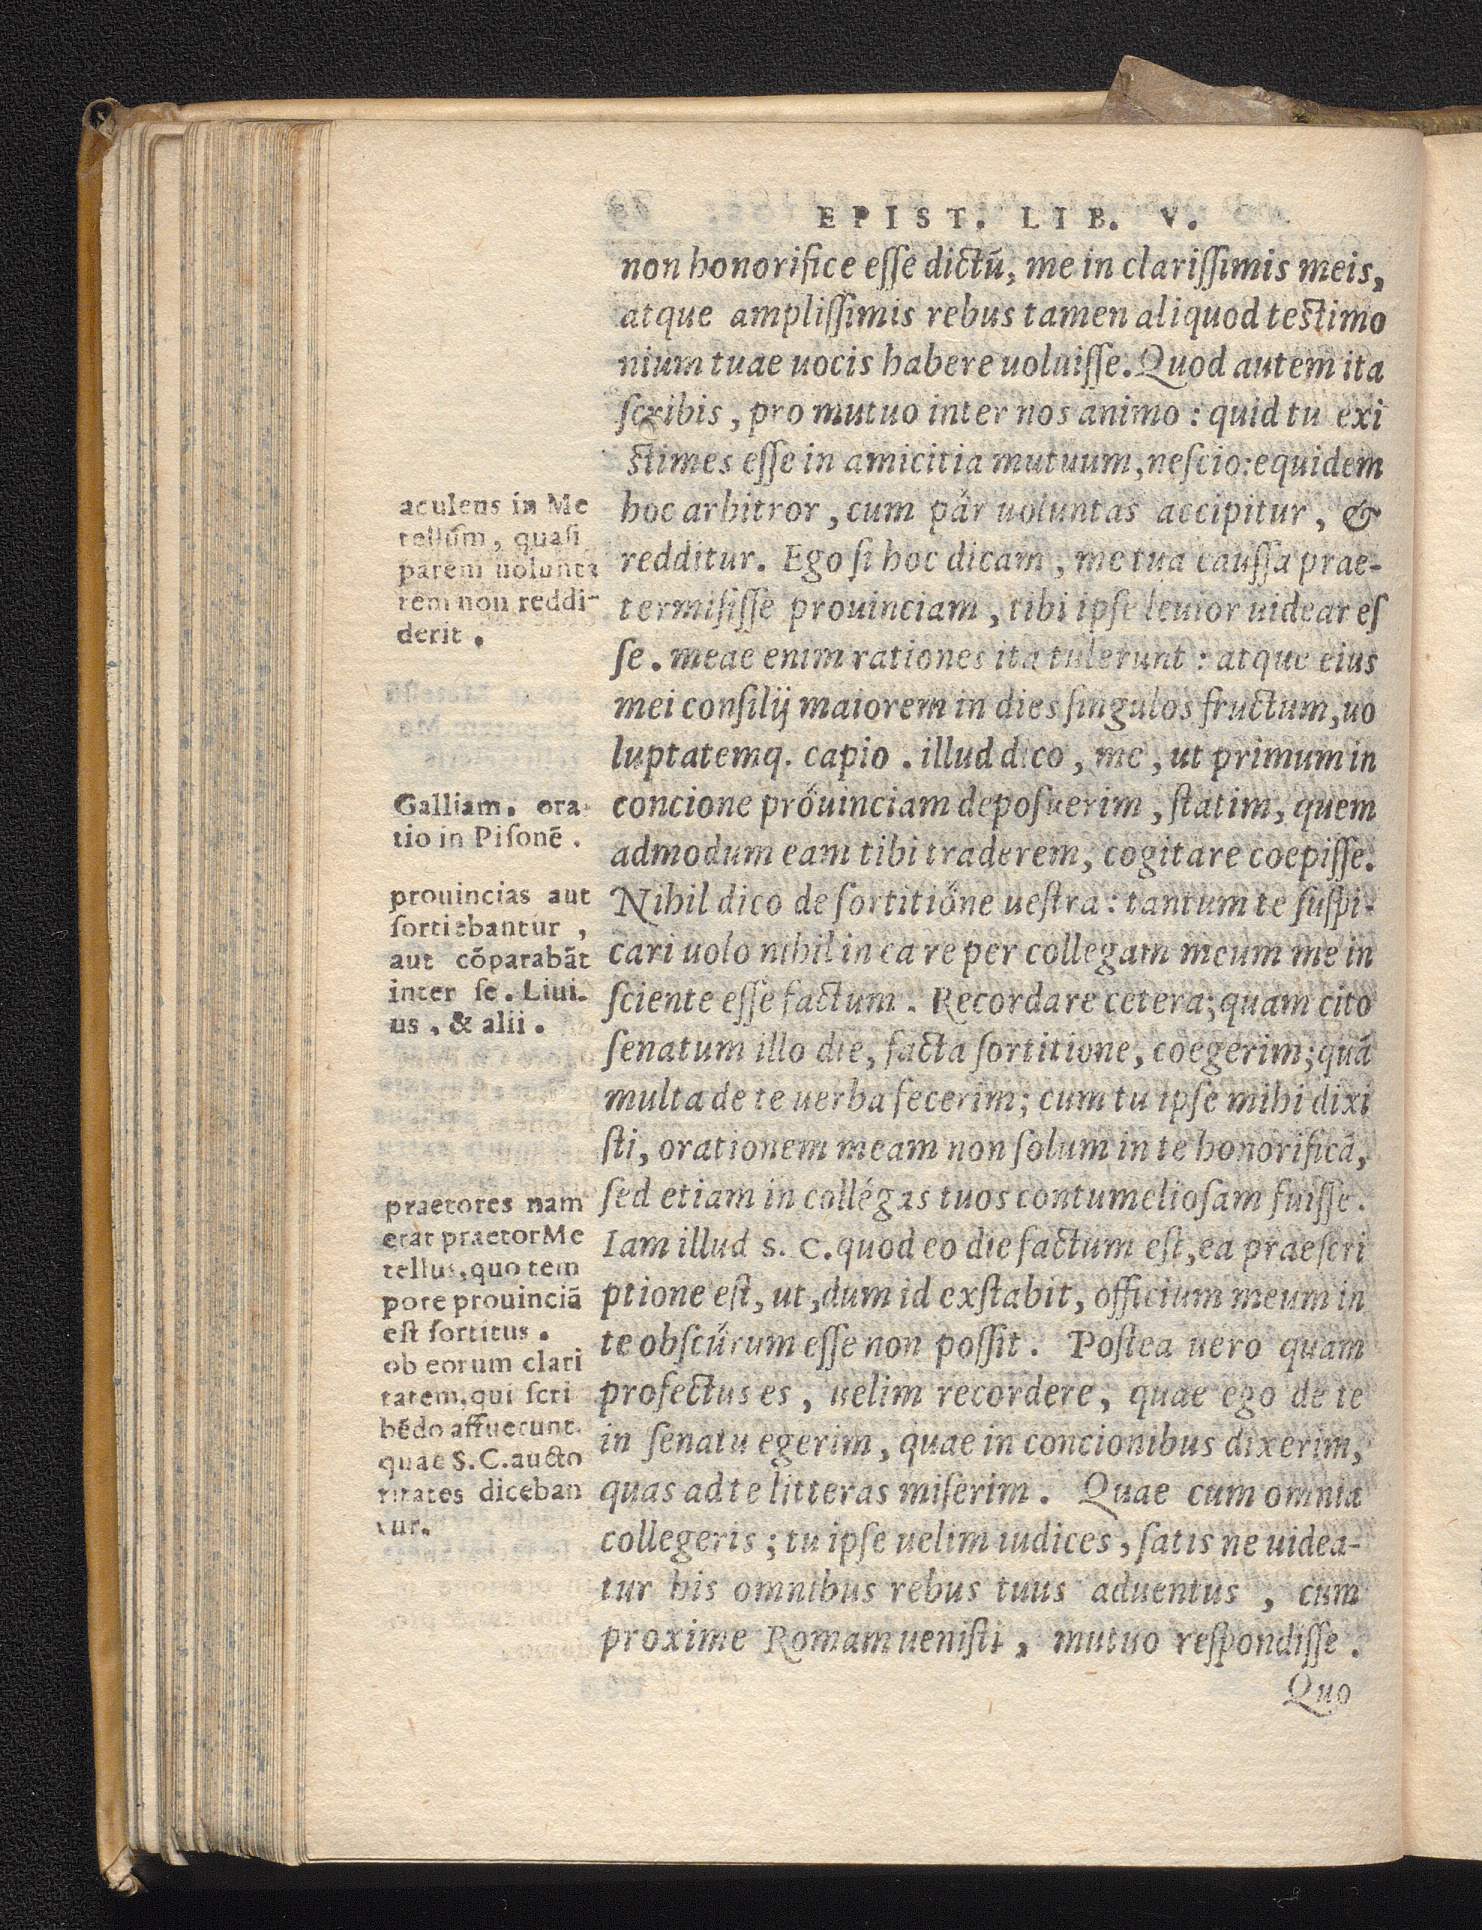 EPIST. LIB. V.
non honorifice eſſe dictũ, me in clariſſimis meis,
atque ampliſſimis rebus tamen aliquod teſtimo
nium tuae uocis habere uoluiſſe. Quod autem ita
ſcribis, pro mutuo inter nos animo: quid tu exi
ſtimes eſſe in amicitia mutuum, neſcio: equidem
hoc arbitror, cum pár uoluntas accipitur, &
redditur. Ego ſi hoc dicam, me tua cauſſa prae-
termiſiſſe prouinciam, tibi ipſe leuior uidear eſ
ſe. meae enim rationes ita tulerunt: atque eius
mei conſilij maiorem in dies ſingulos fructum, uo
luptatemq. capio. illud dico, me, ut primum in
concione próuinciam depoſuerim, ſtatim, quem
admodum eam tibi traderem, cogitare coepiſſe.
Nihil dico de ſortitióne ueſtra: tantum te ſuſpi-
cari uolo nihil in ea re per collegam meum me in
ſciente eſſe factum. Recordare cetera; quam cito
ſenatum illo die, facta ſortitione, coegerim; quã
multa de te uerba fecerim; cum tu ipſe mihi dixi
ſti, orationem meam non ſolum in te honorificã,
ſed etiam in collégas tuos contumelioſam fuiſſe.
Iam illud S. C. quod eo die factum eſt, ea praeſcri
ptione eſt, ut, dum id exſtabit, officium meum in
te obſcúrum eſſe non poſſit. Poſtea uero quam
profectus es, uelim recordere, quae ego de te
in ſenatu egerim, quae in concionibus dixerim,
quas ad te litteras miſerim. Quae cum omnia
collegeris; tu ipſe uelim iudices, ſatis ne uidea-
tur his omnibus rebus tuus aduentus, cum
proxime Romam ueniſti, mutuo reſpondiſſe.
Quo
aculens in Me
tellum, quaſi
parem uolunta
tem non reddi-
derit.
Galliam. ora-
tio in Piſonẽ.
prouincias aut
ſortiebantur,
aut cõparabãt
inter ſe. Liui-
us, & alii.
praetores nam
erat praetor Me
tellus, quo tem
pore prouinciã
eſt ſortitus.
ob eorum clari
tatem, qui ſcri
bẽdo affuerunt.
quae S. C. aucto
ritates diceban
tur.